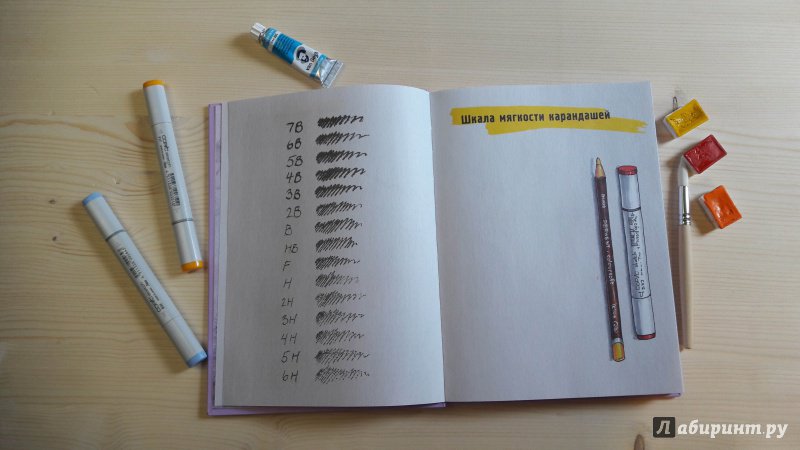 7B
6B
5B
4B
3B
2B
B
HB
F
H
2H
3H
4H
5H
6H
Шкала мягкости карандашей
Лабиринт.ру